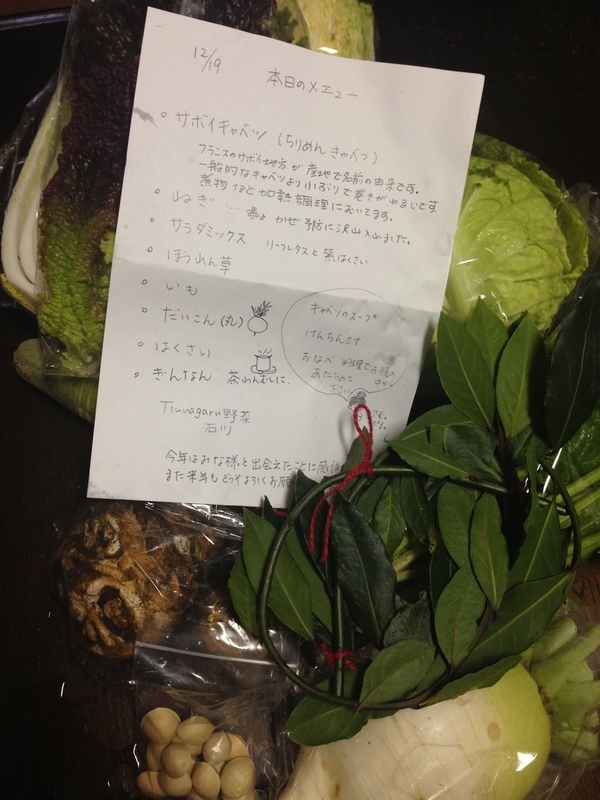 12/19
本日のメニュー
◦ サボイキャベツ (ちりめんきゃべつ)
フランスのサボイ地方が産地で名前の由来です。
一般的なキャベツより小ぶりで巻きがゆるいです。
煮物など加熱調理においてます。
◦ ねぎ … かぜ予防に沢山入りました。
サラダミックス リーフレタスと紫はくさい
◦ ほうれん草
◦ いも
◦ だいこん (丸)
◦ はくさい
◦ ぎんなん 茶わんむしに。
キャベツのスープ
けんちん汁
おなべ 料理でお腹の
あたためて
下さい
Tsunagaru野菜
石川
今年はみな様と出会えたことに感謝
また来年もどうぞよろしくお願